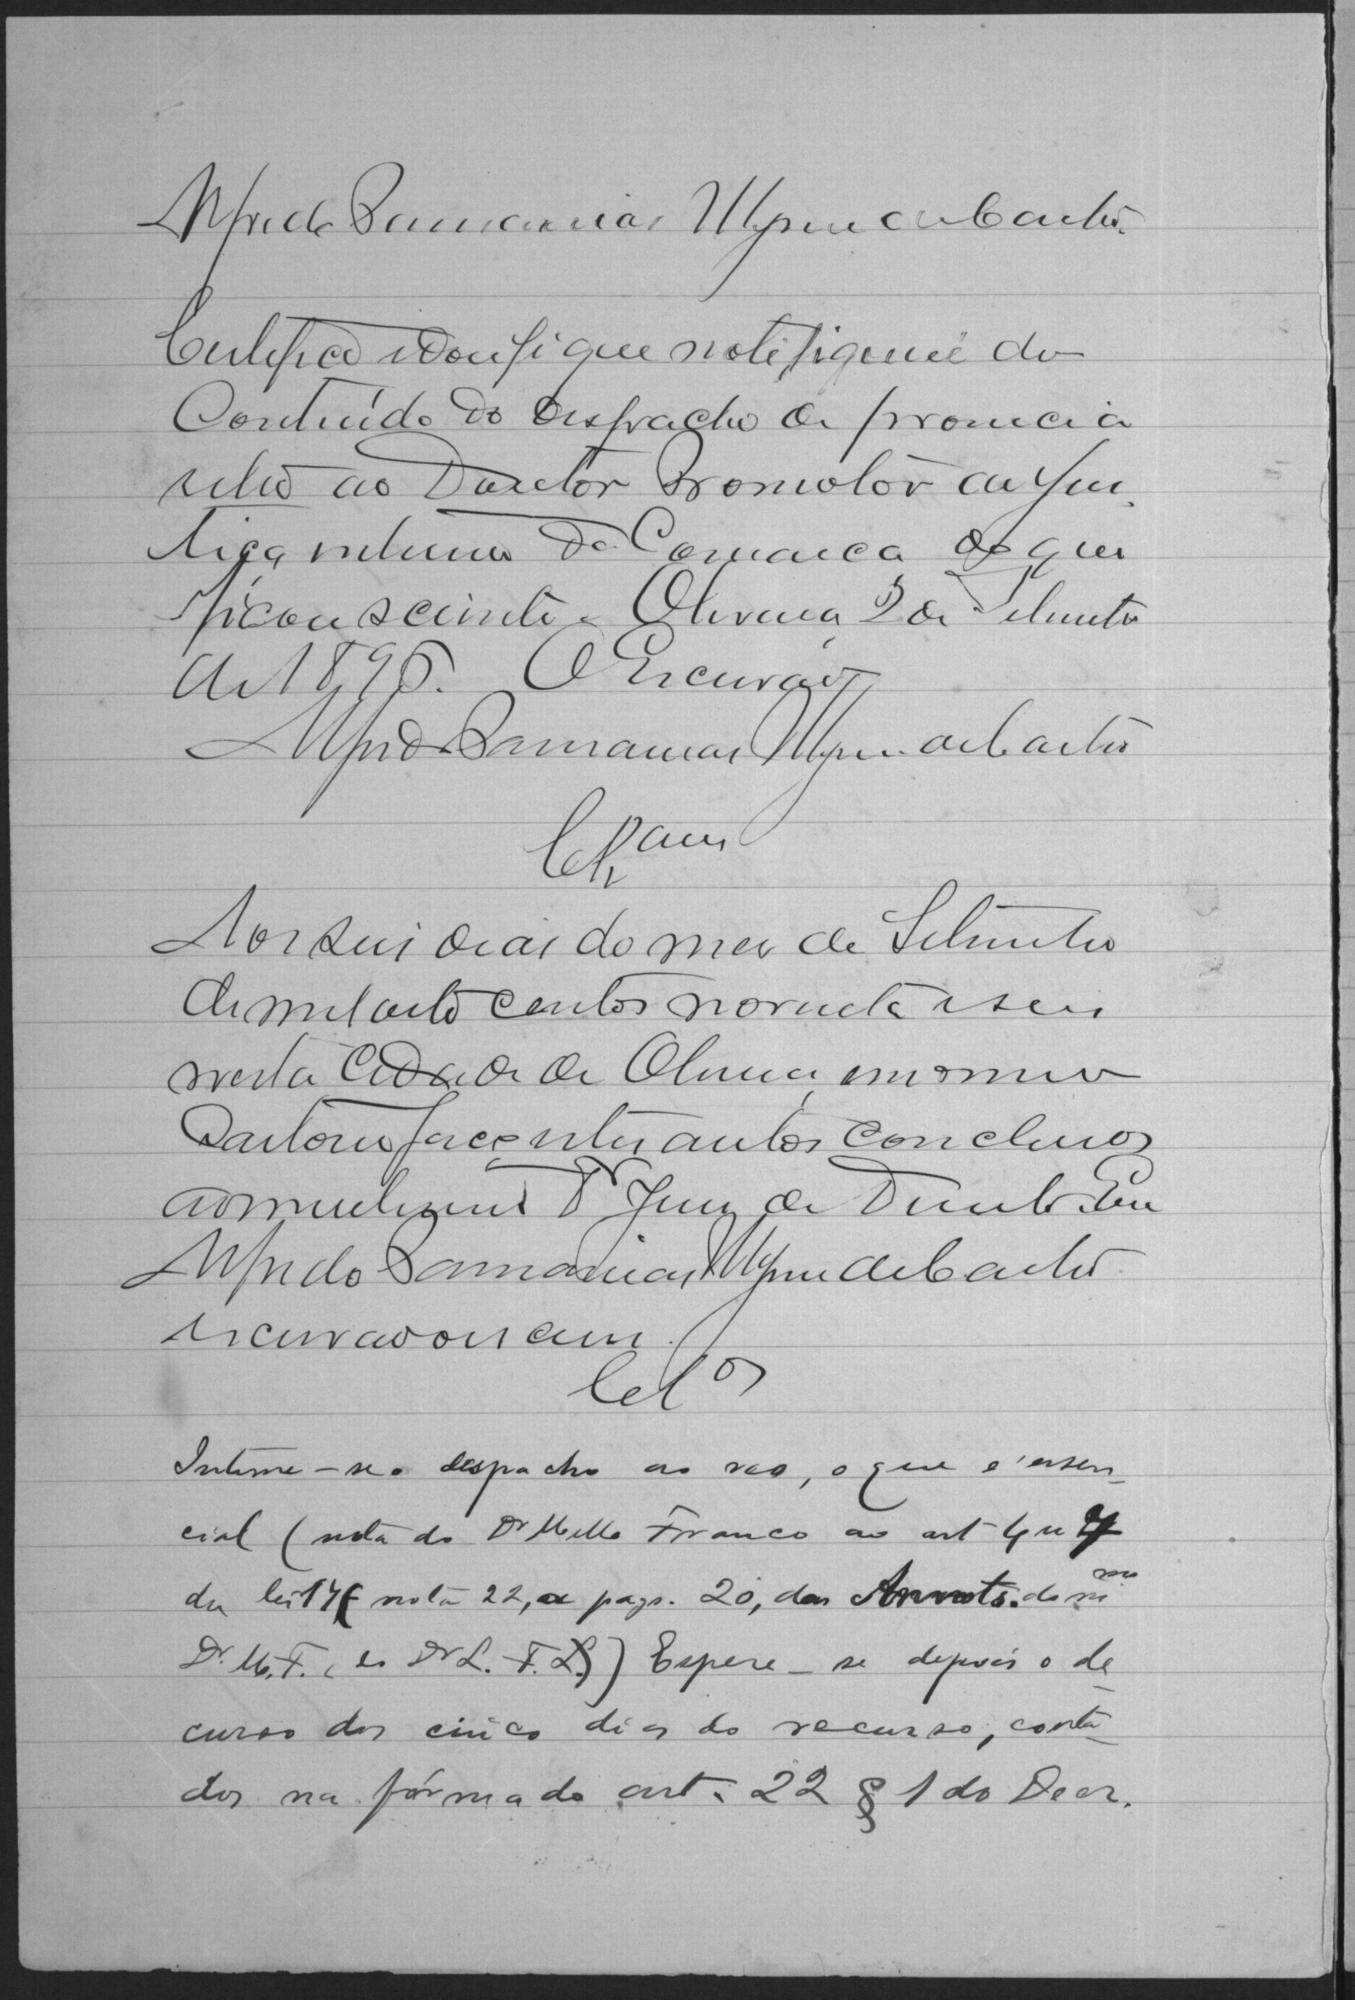 Alfredo Damancias de Castro
Certifico e dou fé que notifiquei do
Contheúdo do despacho de pronuncia
retro ao Doutor Promotor da Jus
tiça interino da Comarca do que
ficou sciente. Oliveira 2 de Setembro
de 1896. O Escrivão
Alfredo Damancias de Castro
Clsam
Aos seis dias do mez de Setembro
de mil oito centos noventa e seis
nesta Cidade de Oliveira, em o meu
Cartorio faço estes autos conclusos
ao Dr Juiz de Direito. Eu
Alfredo Damancias de Castro
escrivão
Clos
Intime-se o despacho ao reo, o que é essen-
cial (nota do Dr Mello Franco ao art
da lei nota 22, a pag. 20, das Annots. do mmo
Dr. M. F. e Dr L. F. L.) Espere-se depois o de-
curso dos cinco dias do recurso, conta-
dos na fórma do art. 22 § 1 do Decr.